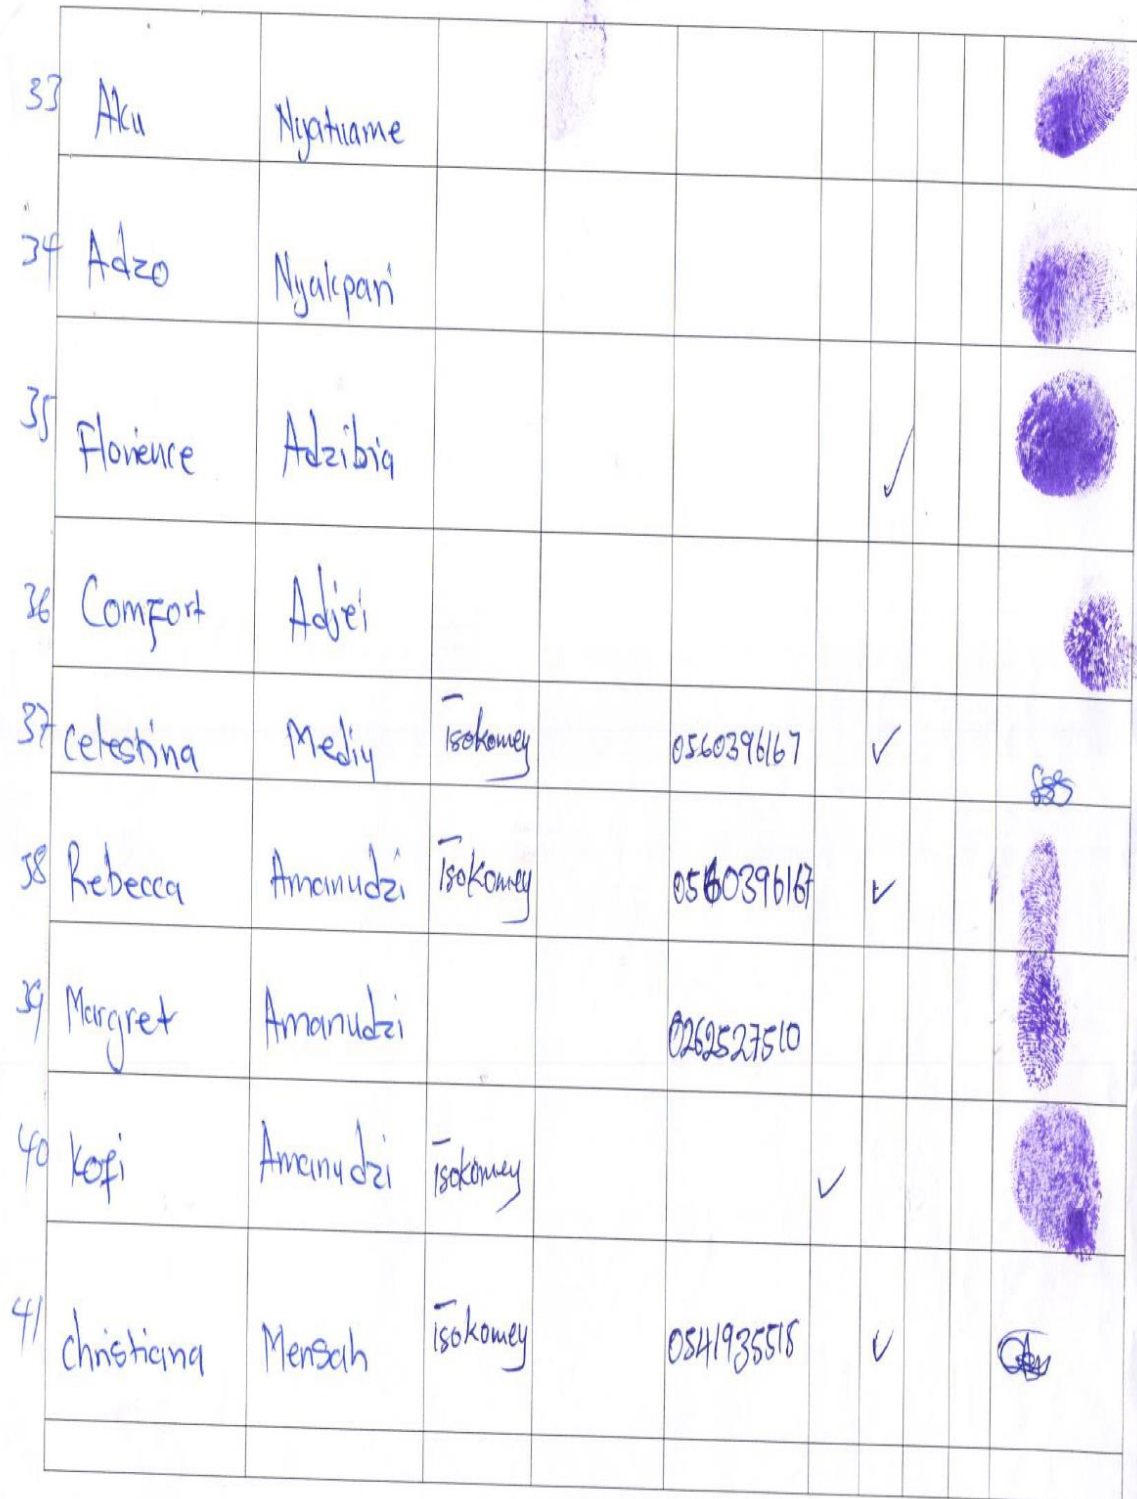 33 Aku Nyatuame
34 Adzo Nyakpari
35 Florience Adzibia
36 Comfort Adjei
37 Celestina Mediy Tsokomey 0560396167 ✓
38 Rebecca Amanudzi Tsokomey 0560396167 ✓
39 Margret Amanudzi 0262527510
40 Kofi Amanudzi Tsokomey ✓
41 Christiana Mensah Tsokomey 0541935518 ✓